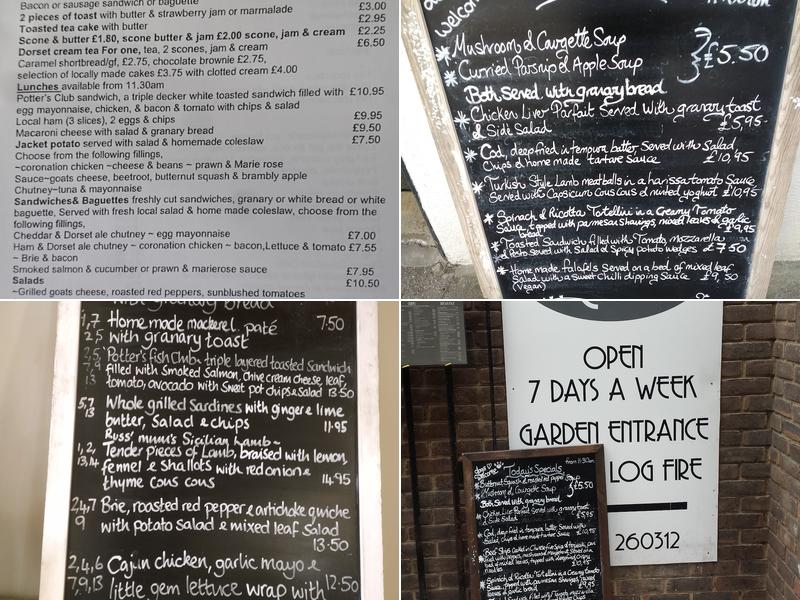 Bacon or sausage sandwich or baguette £3.00
2 pieces of toast with butter & strawberry jam or marmalade £2.95
Toasted tea cake with butter £2.25
Scone & butter £1.80, scone butter & jam £2.00 scone, jam & cream £6.50
Dorset cream tea For one, tea, 2 scones, jam & cream
Caramel shortbread/gf, £2.75, chocolate brownie £2.75,
selection of locally made cakes £3.75 with clotted cream £4.00
Lunches available from 11.30am
Potter's Club sandwich, a triple decker white toasted sandwich filled with £10.95
egg mayonnaise, chicken, & bacon & tomato with chips & salad
Local ham (3 slices), 2 eggs & chips £9.95
Macaroni cheese with salad & granary bread £9.50
Jacket potato served with salad & homemade coleslaw £7.50
Choose from the following fillings,
~coronation chicken ~cheese & beans ~ prawn & Marie rose
Sauce~goats cheese, beetroot, butternut squash & brambly apple
Chutney~tuna & mayonnaise
Sandwiches& Baguettes freshly cut sandwiches, granary or white bread or white
baguette, Served with fresh local salad & home made coleslaw, choose from the
following fillings,
Cheddar & Dorset ale chutney ~ egg mayonnaise £7.00
Ham & Dorset ale chutney ~ coronation chicken ~ bacon,Lettuce & tomato £7.55
~ Brie & bacon
Smoked salmon & cucumber or prawn & marierose sauce £7.95
Salads £10.50
~Grilled goats cheese, roasted red peppers, sunblushed tomatoes
welcome
Mushroom & Courgette Soup
Curried Parsnip & Apple Soup £5.50
Both Served with granary bread
Chicken Liver Parfait Served with granary toast
& Side Salad £5,95
Cod, deepfried in tempura batter, Served with Salad
Chips & home made tartare Sauce £10,95
Turkish Style Lamb meatballs in a harissa tomato Sauce
Served with Capsicum Cous Cous & minted yoghurt £10,95
Spinach & Ricotta Tortellini in a Creamy Tomato
Sauce, topped with parmesan Shavings, mixed leaves & garlic
bread £9,95
Toasted Sandwich filled with Tomato, Mozzarella
& Pesto Served with Salad & Spicy potato wedges £7.50
Home made falafels Served on a bed of mixed leaf
Salad with a Sweet Chilli dipping Sauce £9,50
(Vegan)
with granary bread
1,7 Home made mackerel paté 7.50
2,5 with granary toast
2,5 Potter's fish Club, triple layered toasted Sandwich
7,9 filled with Smoked Salmon, chive cream cheese, leaf,
13 tomato, avocado with Sweet pot chips & Salad 13.50
5,7 Whole grilled Sardines with ginger & lime
13 butter, Salad & chips 11.95
Russ' mum's Sicilian Lamb~
1,2, Tender pieces of Lamb, braised with lemon,
13,14 fennel & Shallots with red onion &
thyme cous cous 14.95
2,4,7 Brie, roasted red pepper & artichoke quiche
9 with potato Salad & mixed leaf Salad
13.50
2,4,6 Cajun chicken, garlic mayo &
7,9,13 little gem lettuce wrap with 12.50
OPEN
7 DAYS A WEEK
GARDEN ENTRANCE
LOG FIRE
260312
Today's Specials from 11.30am
Butternut Squash & roasted red pepper Soup
Mushroom & Courgette Soup £5.50
Both Served with granary bread
Chicken Liver Parfait Served with granary toast
& Side Salad £5.95
Cod, deep fried in tempura batter Served with
Salad, Chips & home made tartare Sauce £10,95
Spinach & Ricotta Tortellini in a Creamy Tomato